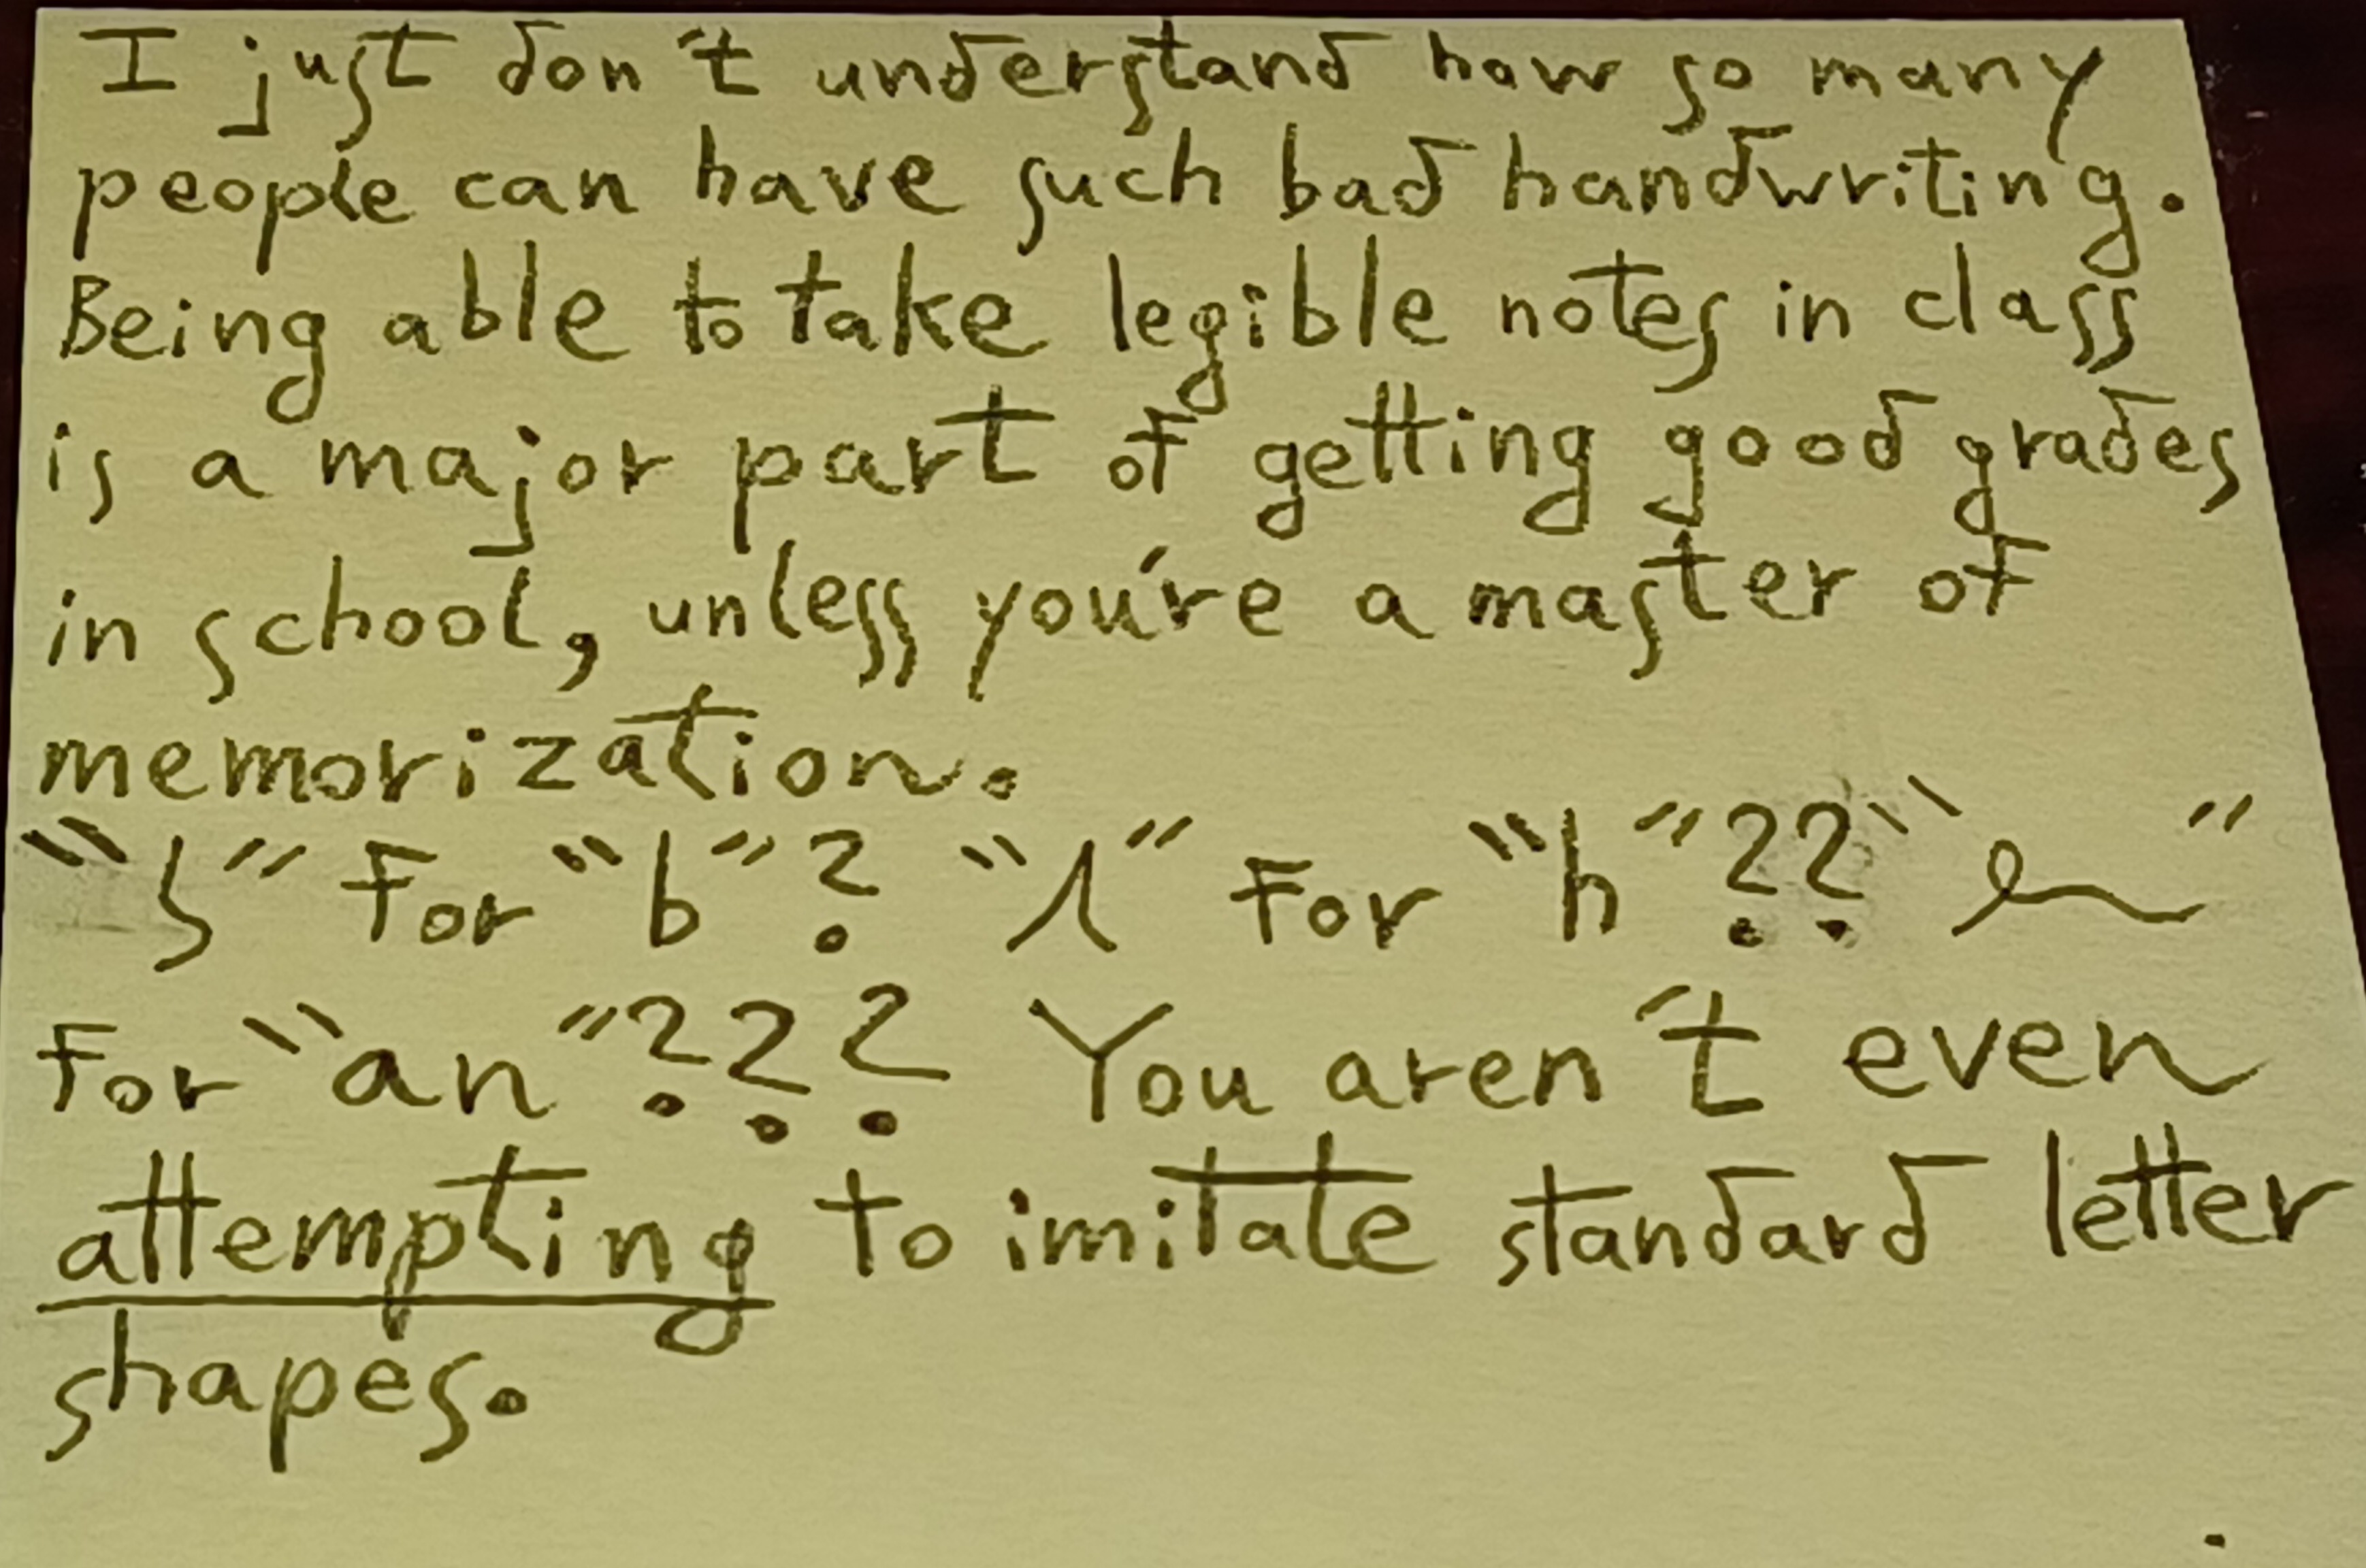 I just don't understand how so many
people can have such bad handwriting.
Being able to take legible notes in class
is a major part of getting good grades
in school, unless you're a master of
memorization.
"ʖ" For "b"? "ʎ" For "h"?? "    "
For "an"??? You aren't even
attempting to imitate standard letter
shapes.